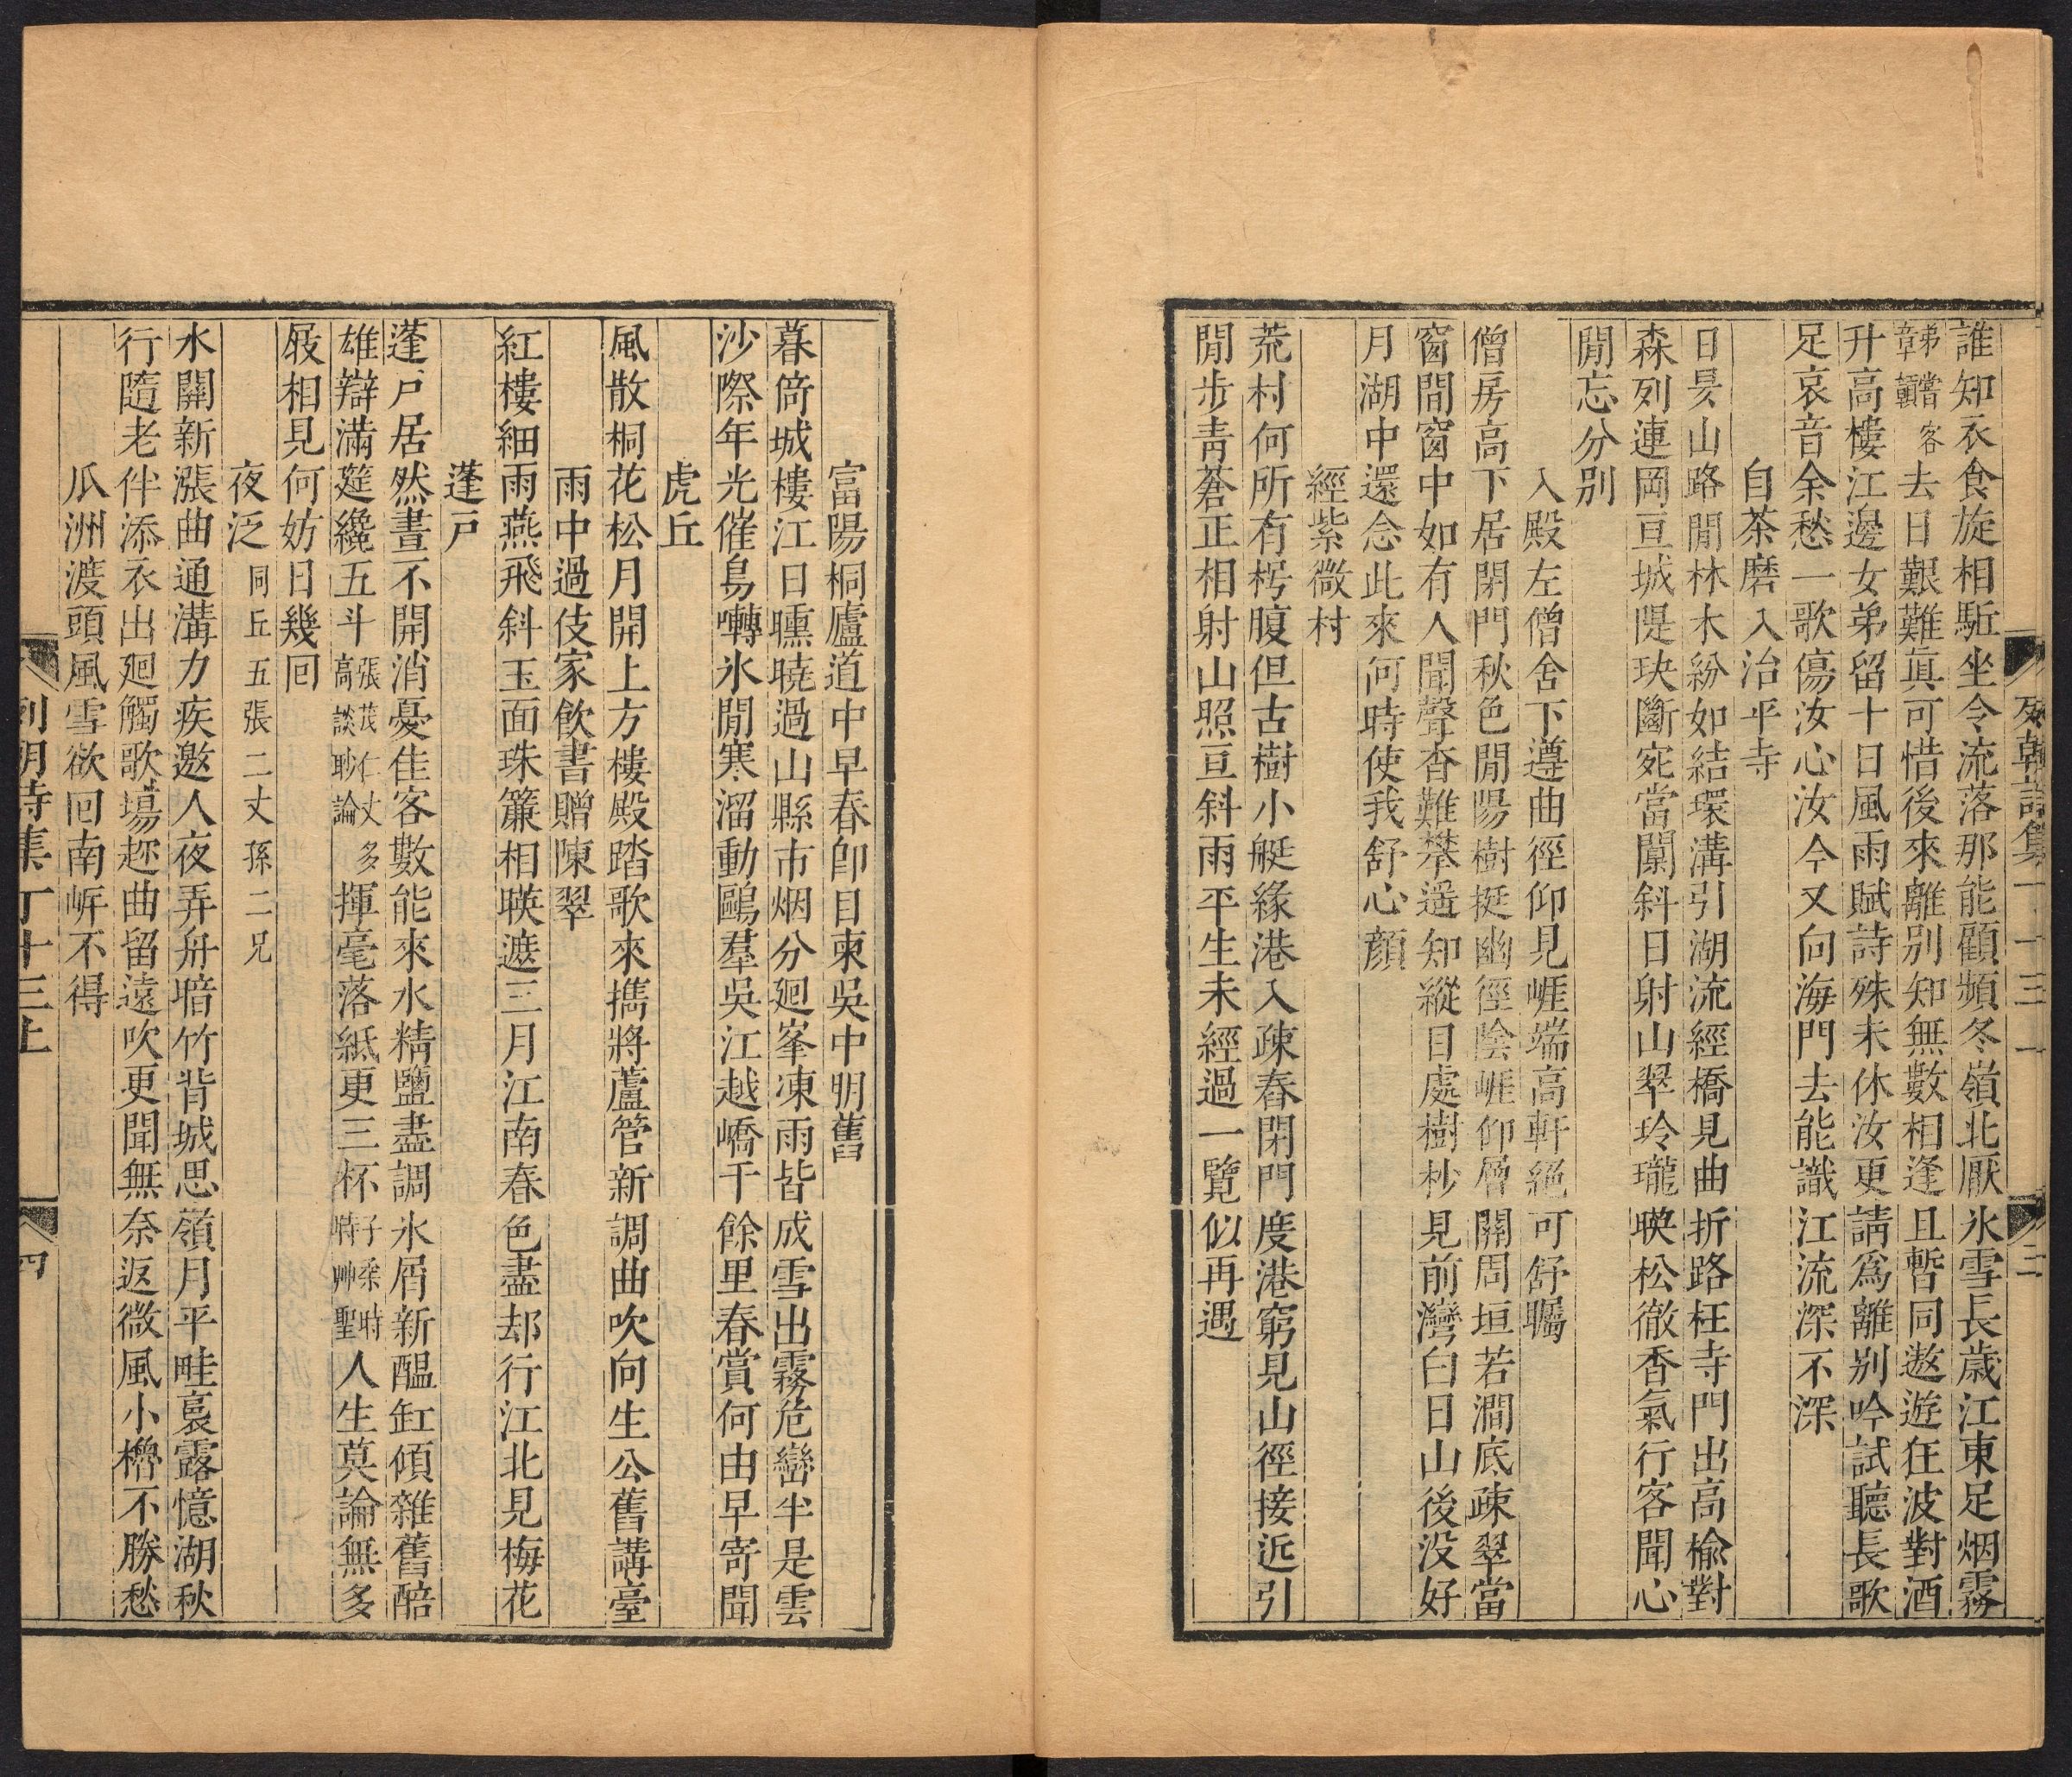 誰知衣食旋相駈坐令流落那能顧頻冬嶺北厭氷雪長歲江東足烟霧
弟嘗客
章贑去日艱難眞可惜後來離別知無數相逢且暫同遨遊在波對酒
升高樓江邊女弟留十日風雨賦詩殊未休汝更請爲離別吟試聽長歌
足哀音余愁一歌傷汝心汝今又向海門去能識江流深不深
自茶磨入治平寺
日昃山路閒林木紛如結環溝引湖流經橋見曲折路枉寺門出高楡對
森列連岡亘城隄玦斷宛當闃斜日射山翠玲瓏暎松徹香氣行客聞心
閒忘分別
入殿左僧舍下遵曲徑仰見崕端高軒絕可舒矚
僧房高下居閉門秋色閒陽樹挺幽徑陰崕仰層關周垣若澗底疎翠當
窗間窗中如有人聞聲杳難攀遥知縱目處樹杪見前灣白日山後没好
月湖中還念此來何時使我舒心顏
經紫微村
荒村何所有枵腹但古樹小艇緣港入疎舂閉門度港窮見山徑接近引
閒步靑蒼正相射山照亘斜雨平生未經過一覽似再遇
列朝詩集丁十三上
三
富陽桐廬道中早春卽目柬吳中朋舊
暮倚城樓江日曛曉過山縣市烟分廻峯凍雨皆成雪出霧危巒半是雲
沙際年光催鳥囀氷閒寒溜動鷗羣吳江越嶠千餘里春賞何由早寄聞
虎丘
風散桐花松月開上方樓殿踏歌來擕將蘆管新調曲吹向生公舊講臺
雨中過伎家飮書贈陳翠
紅樓細雨燕飛斜玉面珠簾相暎遮三月江南春色盡却行江北見梅花
蓬戸
蓬戸居然晝不開消憂佳客數能來水精鹽盡調氷屑新醞缸傾雜舊醅
雄辯滿筵纔五斗張茂仁丈多高談耹論揮毫落紙更三杯子柔時時艸聖人生莫論無多
屐相見何妨日幾回
夜泛同丘五張二丈孫二兄
水關新漲曲通溝力疾邀人夜弄舟暗竹背城思嶺月平畦裛露憶湖秋
行隨老伴添衣出廻觸歌塲趂曲留遠吹更聞無奈返微風小櫓不勝愁
瓜洲渡頭風雪欲回南岸不得
列朝詩集丁十三上
四